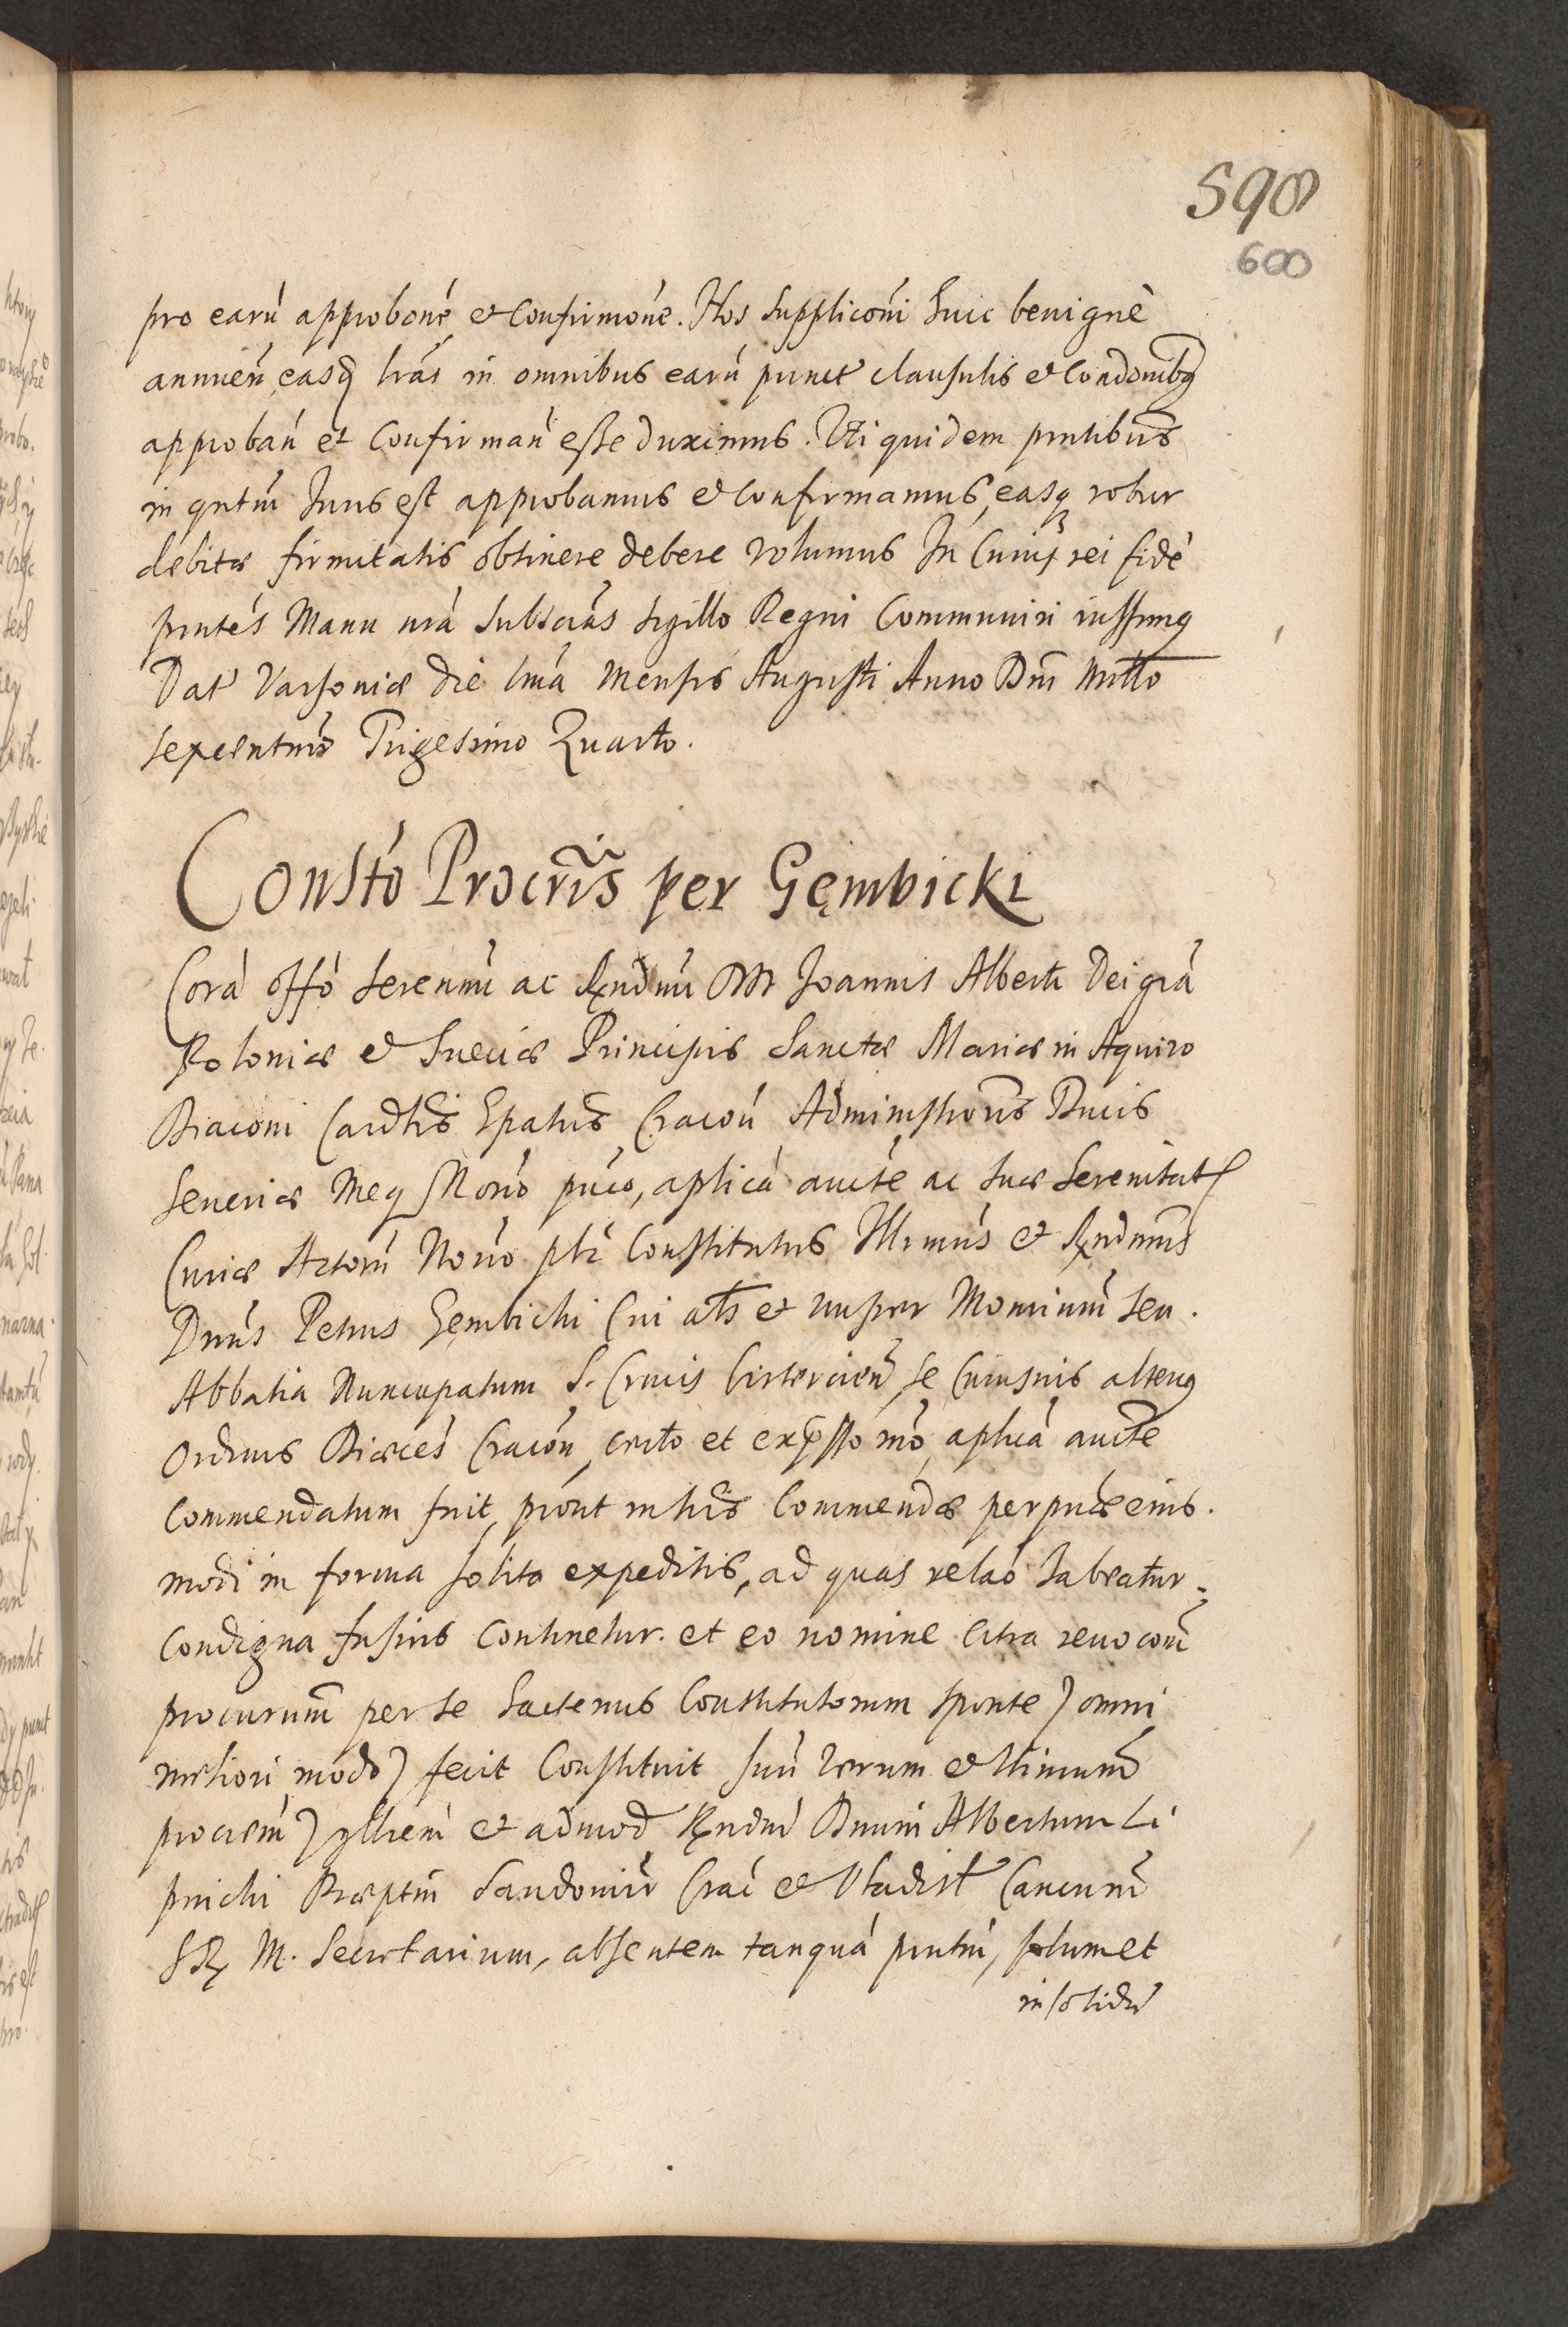 598
600
pro earū approbonē et Confirmone. Nos supplicōni huic benignè
annuen̄, easq̨ lrās in omnibus earū punct clausulis et Condōnibq̨
approban̄ et Confirman̄ esse duximus. Uti quidem pntibus
in qntm̄ Iuris est approbamus et Confirmamus, easq̨ robur
debitæ firmitatis obtinere debere volumus In Cuiuȝ rei fidē
pntēs Manu nrā subscrās sigillo Regni Communiri iussimq̨
Dat Varsoviæ die Imā Mensis Augusti Anno Dn̄i Mill̄o
sexcentmō Trigesimo Quarto.
Constō Procrīs per Gęmbicki
Corā offō serenmi ac Rndmi DD Joannis Alberti Dei grā
Poloniæ et Sueciæ Principis Sanctæ Mariæ in Aquiro
Diaconi Cardlis Epatus Cracoū Administroris Ducis
Severiæ Meq̨ Norio pūco, aplicā aucte ac suæ Serenitatȩ
Curiæ Actorū Norio plr Constitutus Illrmus et Rndmus
Dnus Petrus Gembicki Cui als et nuper Monriūm seu
Abbatia Nuncupatum S. Crucis Cistercien̄, se Cuiusuis alterq̨
Ordinis Diæcēs Cracoū, certo et expresso mō, aplicā aucte
Commendatum fuit, prout in lris Commendæ perpuæ eius.
modi in forma solita expeditis, ad quas relaō habeatur
Condigna fusius Continetur. et eo nomine Citra revocom̄
procurum̄ per se hactenus Constitutorum sponte) omni
meliori modo) fecit Constituit suū verum et ltimum̄
procrem̄) ylltrem̄ et admod Rndm̄ Dnum Albertum Li
pnichi Præptm̄ Sandomir̄ Crac̄ et Vladisl Canoum̄
S R M. Secretarium, absentem tanquā pntm̄, solum et
in solidū